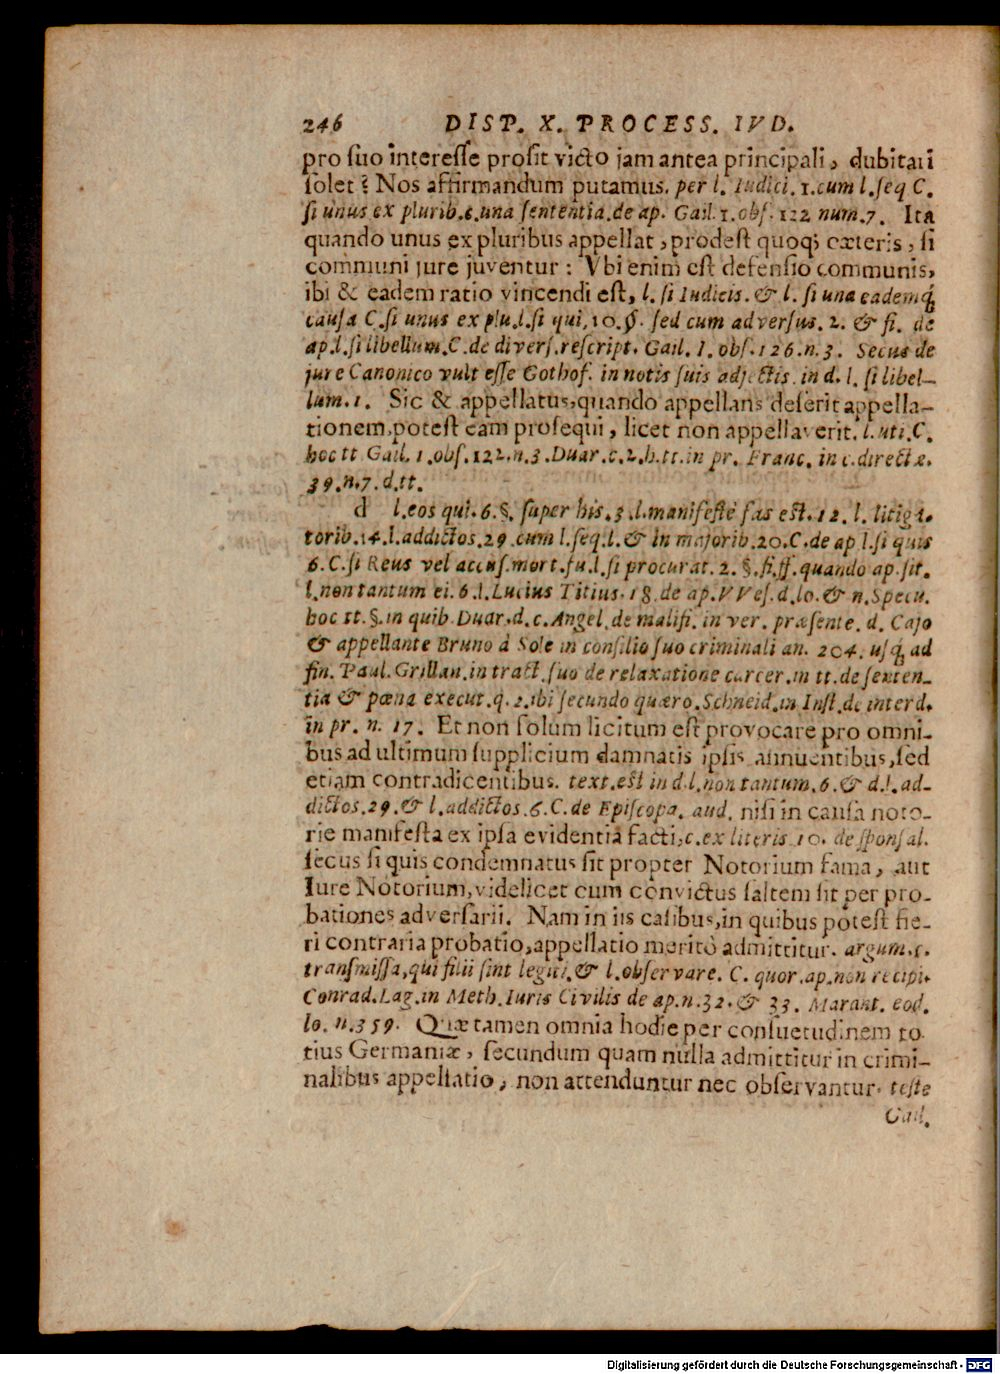 246 DISP. X. PROCESS. IVD.
pro ſuo intereſſe proſit victo jam antea principali, dubitari
ſolet? Nos affirmandum putamus. per l. Iudici. 1. cum l. ſeq C.
ſi unus ex plurib. e. una ſententia. de ap. Gail. 1. obſ. 122 num. 7. Ita
quando unus ex pluribus appellat, prodeſt quoq; cæteris, ſi
communi jure juventur: Vbi enim eſt defenſio communis,
ibi & eadem ratio vincendi eſt, l. ſi Iudicis. & l. ſi una eademq́
cauſa C. ſi unus ex plu. l. ſi qui, 10. §. ſed cum adverſus. 2. & fi. de
ap. l. ſi libellum. C. de diverſ. reſcript. Gail. 1. obſ. 126. n. 3. Secus de
jure Canonico vult eſſe Gothof. in notis ſuis adjectis. in d. l. ſi libel-
lum. 1. Sic & appellatus, quando appellans deſerit appella-
tionem, poteſt eam proſequi, licet non appellaverit. l. uti. C.
hoc tt Gail. 1. obſ. 122. n. 3. Duar. c. 2. h. tt. in pr. Franc. in c. directæ.
39. n. 7. d. tt.
d l. eos qui. 6. §. ſuper his. 3. l. manifeſtè fas eſt. 12. l. litiga-
torib. 14. l. addictos. 29. cum l. ſeq. l. & in majorib. 20. C. de ap l. ſi quis
6. C. ſi Reus vel accuſ. mort. fu. l. ſi procurat. 2. §. fi. ff. quando ap. ſit.
l. non tantum ei. 6. l. Lucius Titius. 18. de ap. VVeſ. d. lo. & n. Specu.
hoc tt. §. in quib. Duar. d. c. Angel. de malifi. in ver. præſente. d. Cajo
& appellante Bruno à Sole in conſilio ſuo criminali an. 204. uſq́ ad
fin. Paul. Grillan. in tract. ſuo de relaxatione carcer. in tt. de ſenten-
tia & pœna execut. q. 2. ibi ſecundo quæro. Schneid. in Inſt. de interd.
in pr. n. 17. Et non ſolum licitum eſt provocare pro omni-
bus ad ultimum ſupplicium damnatis ipſis annuentibus, ſed
etiam contradicentibus. text. eſt in d. l. non tantum. 6. & d. l. ad-
dictos. 29. & l. addictos. 6. C. de Epiſcopa. aud. niſi in cauſa noto-
rie manifeſta ex ipſa evidentia facti, c. ex literis 10. de ſponſal.
ſecus ſi quis condemnatus ſit propter Notorium fama, aut
Iure Notorium, videlicet cum convictus ſaltem ſit per pro-
bationes adverſarii. Nam in iis caſibus, in quibus poteſt fie-
ri contraria probatio, appellatio meritò admittitur. argum. c.
tranſmiſſa, qui filii ſint legiti. & l. obſervare. C. quor. ap. non recipi.
Conrad. Lag. in Meth. Iuris Civilis de ap. n. 32. & 33. Marant. eod.
lo. n. 359. Quæ tamen omnia hodie per conſuetudinem to-
tius Germaniæ, ſecundum quam nulla admittitur in crimi-
nalibus appellatio, non attenduntur nec obſervantur. teſte
Gail.
Digitalisierung gefördert durch die Deutsche Forschungsgemeinschaft - DFG